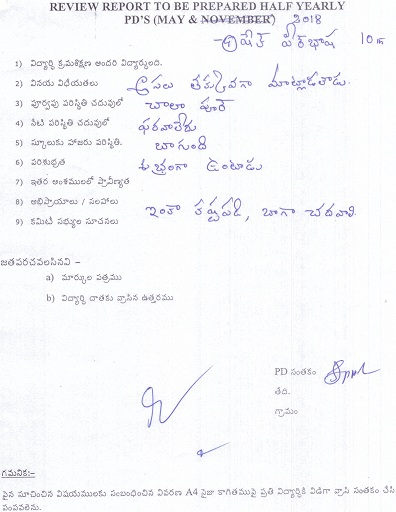 REVIEW REPORT TO BE PREPARED HALF YEARLY
PD'S (MAY & NOVEMBER) 2018
షేక్ పీర్‌భాషా 10th
1) విద్యార్థి క్రమశిక్షణ అందరి విద్యార్థుంది.
2) వినయ విధేయతలు తక్కువగా మాట్లాడతాడు.
3) పూర్వపు పరిస్థితి చదువులో చాలా పూర్
4) నేటి పరిస్థితి చదువులో పరవాలేదు
5) స్కూలుకు హాజరు పరిస్థితి. బాగుంది
6) పరిశుభ్రత శుభ్రంగా ఉంటాడు
7) ఇతర అంశములలో ప్రావీణ్యత
8) అభిప్రాయాలు / సలహాలు ఇంకా కష్టపడి, బాగా చదవాలి
9) కమిటీ సభ్యుల సూచనలు
జతపరచవలసినవి –
a) మార్కుల పత్రము
b) విద్యార్థి దాతకు వ్రాసిన ఉత్తరము
PD సంతకం
తేది.
గ్రామం
గమనిక:–
పైన సూచించిన విషయములకు సంబంధించిన వివరణ A4 సైజు కాగితముపై ప్రతి విద్యార్థికి విడిగా వ్రాసి సంతకం చేసి
పంపవలెను.